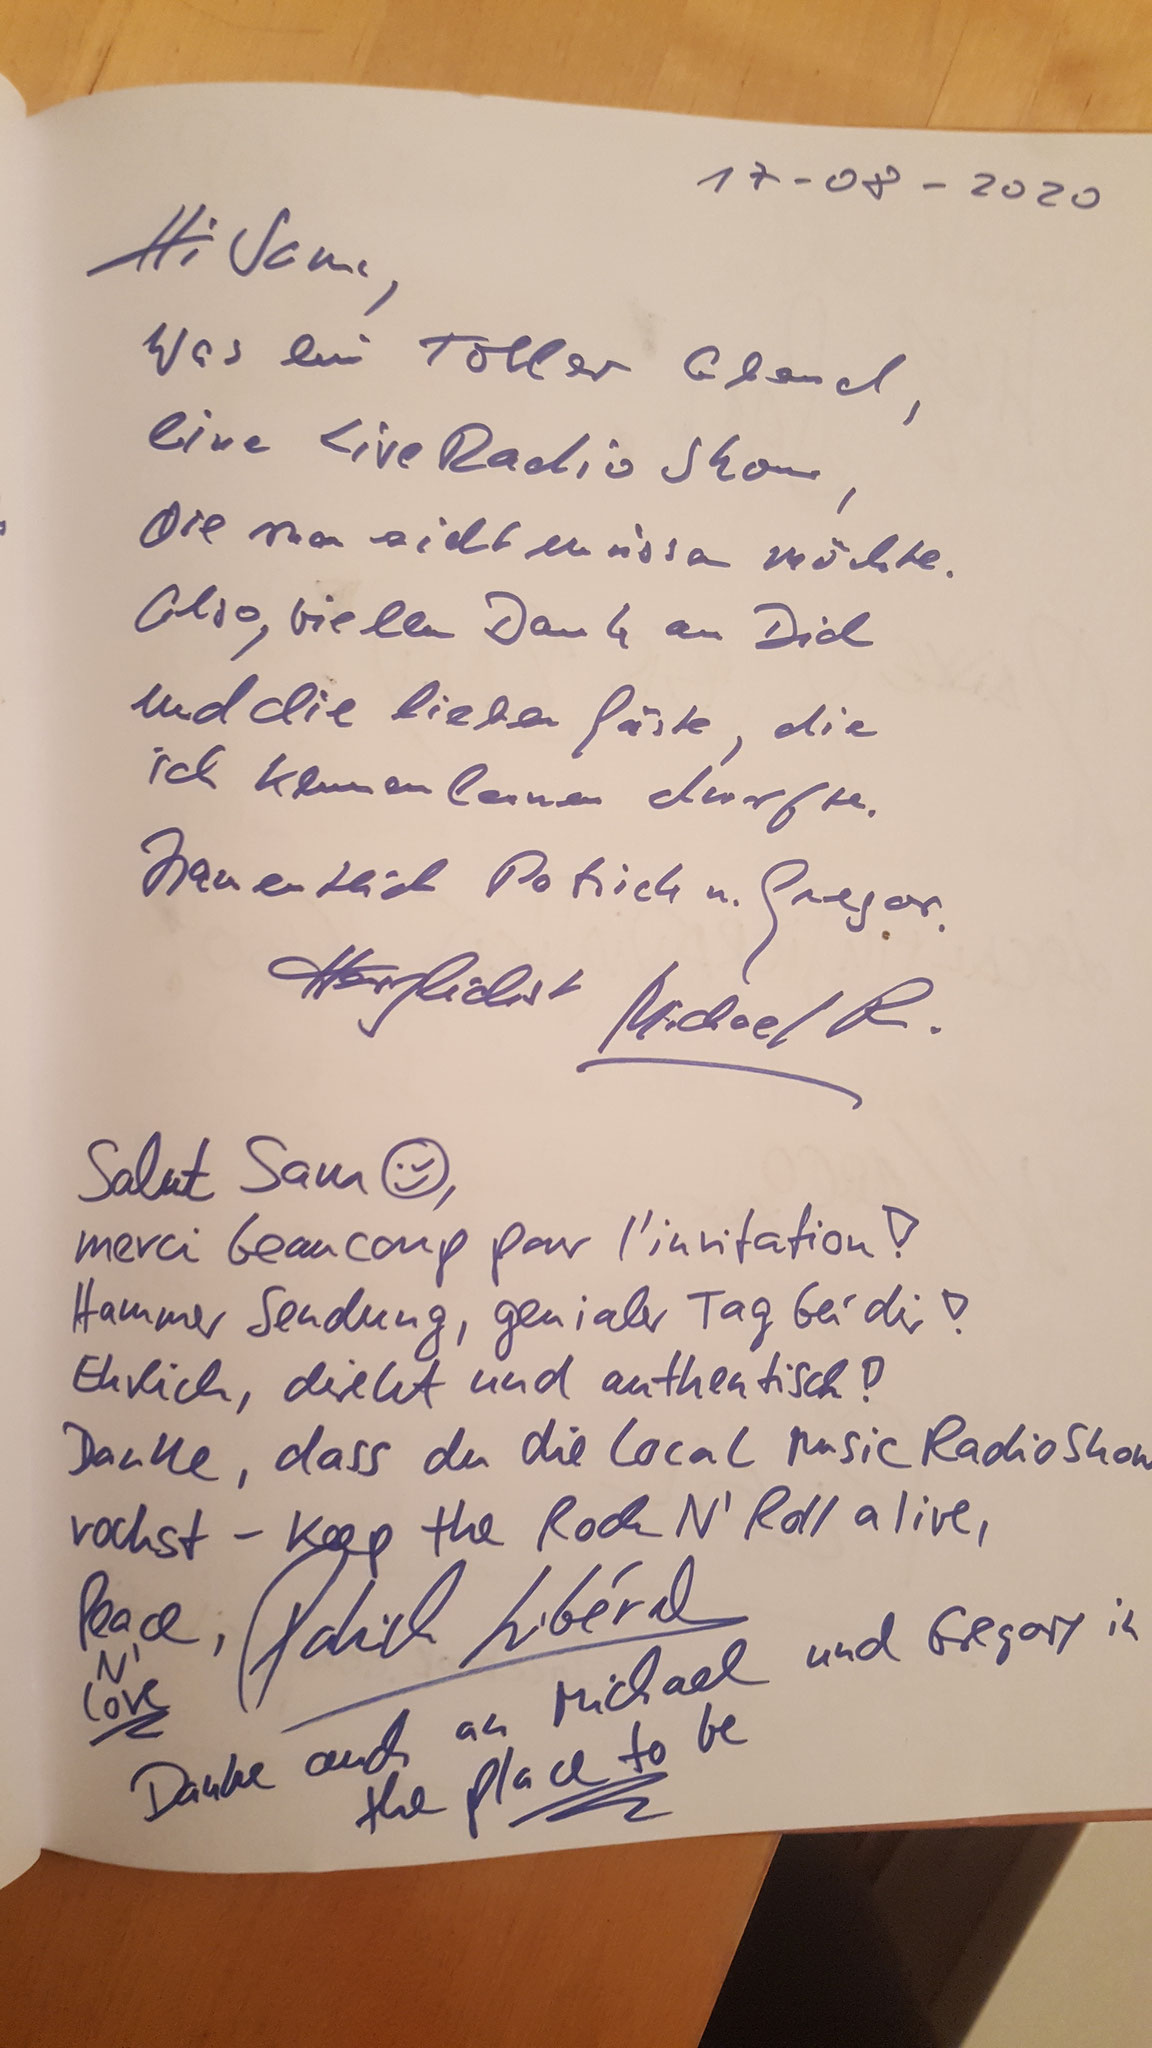 17-08-2020
Hi Sam,
Was ein Toller Abend,
eine Live Radio Show,
Die man nicht missen möchte.
Also, vielen Dank an Dich
und die lieben Gäste, die
ich kennenlernen durfte.
Namentlich Patrick u. Gregor.
Herzlichst Michael R.
Salut Sam,
merci beaucoup pour l'invitation!
Hammer Sendung, genialer Tag bei dir!
Ehrlich, direkt und authentisch!
Danke, dass du die Local Music RadioShow
rockst - Keep the Rock N' Roll alive,
Peace, Patrick Libéral
N'
Love
Danke auch an Michael und Gregory in
the place to be